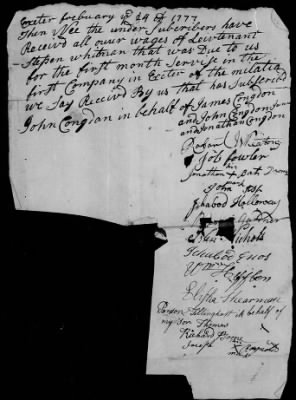 Exeter febuary yd 24 of 1777
Then Wee the under Subcribers have
Receivd all ouer wages of Lievtenant
Stepen whitman that was Due to us
for the first month Servise in the
first Company in Exeter of the militia
we Say Receivd By us that has Subscribed
John Congdon in behalf of James Congdon
and John Congdon Junr
and Jonathan Congdon
Robert
Job fowler
Jonathan
John
Ichabod Holloway
Nichols
Ichabod Enos
Wm Heffbon
Elisha Shearman
Pardon Tillinghast in behalf of
my Son Thomas
Richard
Joseph Reynolds
mark